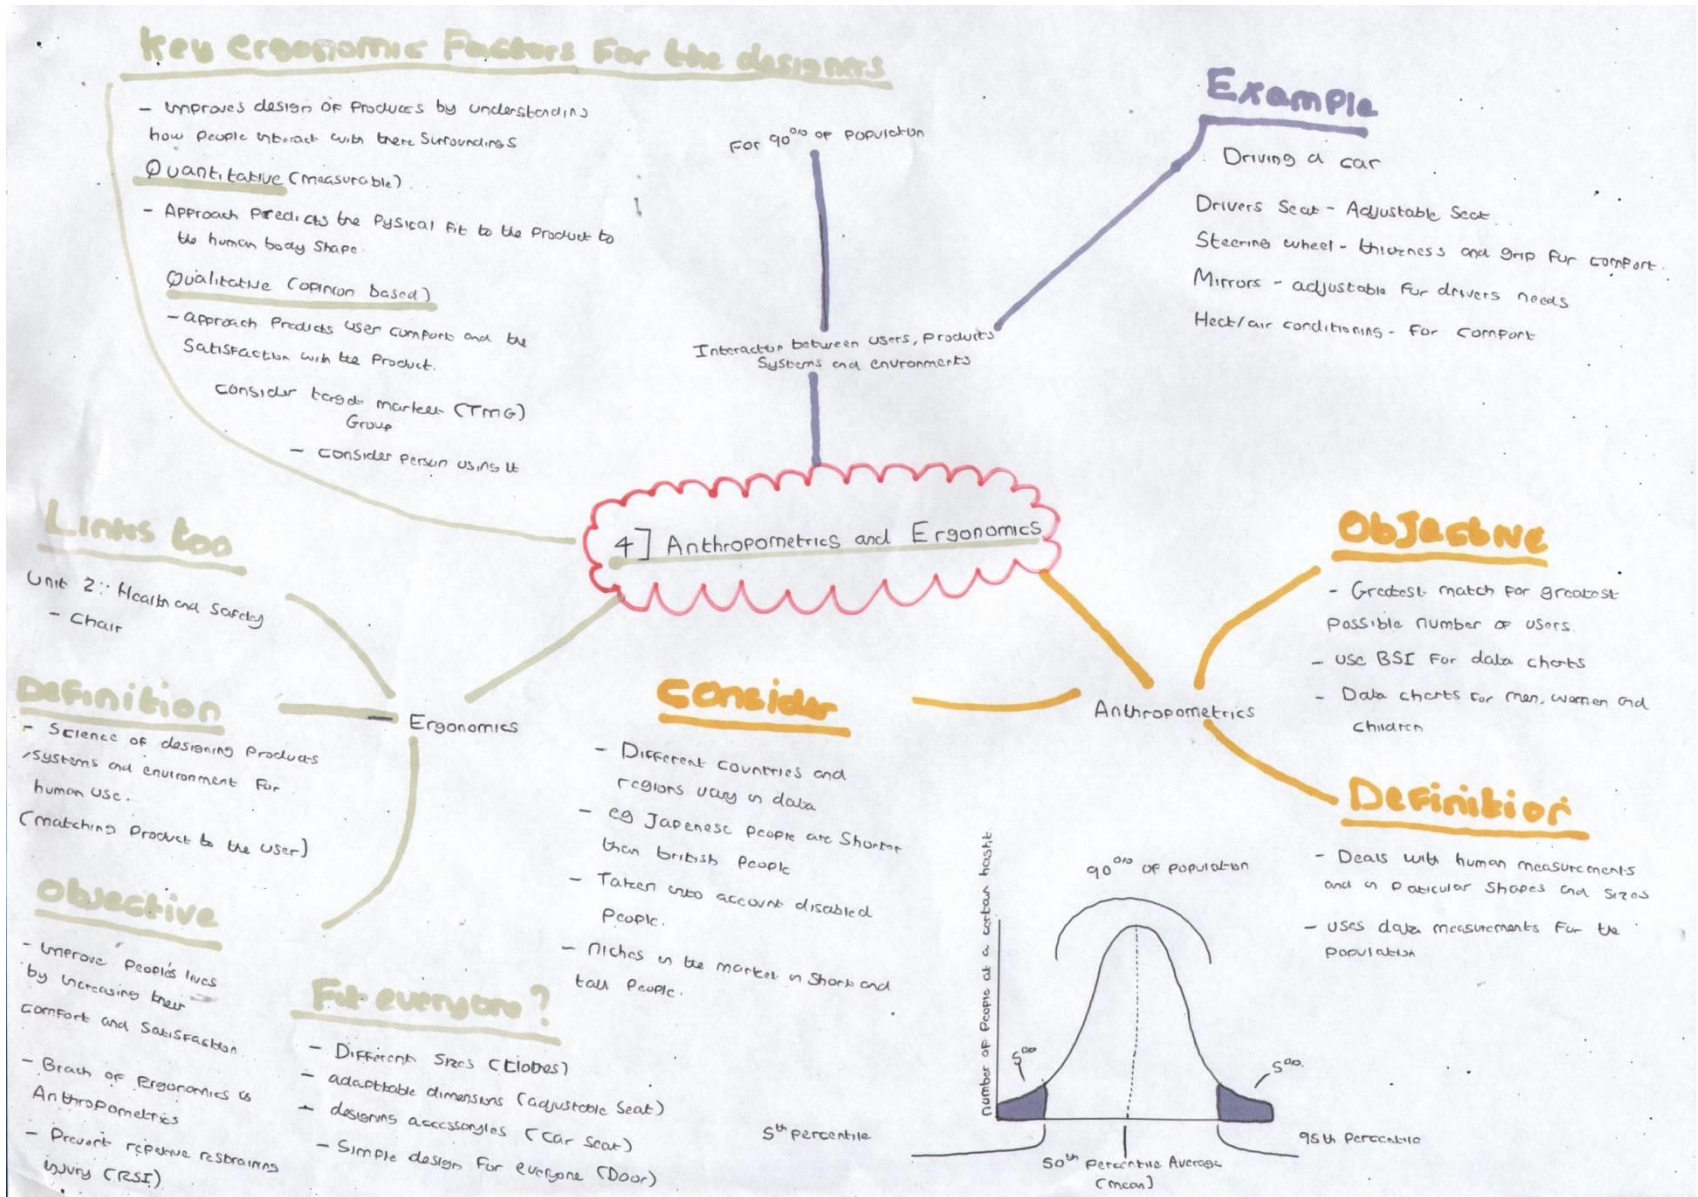 Key ergonomic Factors For the designers
- improves design of Products by understanding
how People interact with there Surroundings
Quantitative (measurable)
- Approach Predicts the Pysical Fit to the Product to
the human body shape.
Qualitative (opinion based)
- approach Predicts user comfort and the
Satisfaction with the Product.
consider target market (TMG)
Group
- consider person using it
For 90% of population
Interaction between users, products
Systems and environments
Example
Driving a car
Drivers Seat - Adjustable Seat
Steering wheel - thickness and grip for comfort.
Mirrors - adjustable for drivers needs
Heat/air conditioning - For comfort
4] Anthropometrics and Ergonomics
Links too
Unit 2: Health and Safety
- Chair
Definition
- Science of designing Products
/systems and environment For
human use.
(matching Product to the user)
Objective
- improve People's lives
by increasing their
comfort and Satisfaction
- Brach of Ergonomics is
Anthropometrics
- Prevent repetive restraining
injury (RSI)
Ergonomics
Fit everyone?
- Different Sizes (Clothes)
- adapttable dimensions (adjustable Seat)
- designing accessories (Car Seat)
- Simple design For everyone (Door)
Consider
- Different countries and
regions vary in data
- eg Japenese people are Shorter
than british People
- Taken into account disabled
People.
- niches in the market in Short and
tall People.
Anthropometrics
Objective
- Greatest match for greatest
possible number of users.
- use BSI For data charts
- Data charts for men, women and
children
Definition
- Deals with human measurements
and in Paticular Shapes and Sizes
- uses data measurements for the
population
90% of population
number of People at a certain height
5%
5%
5th percentile
50th Percentile Average
(mean)
95th Percentile